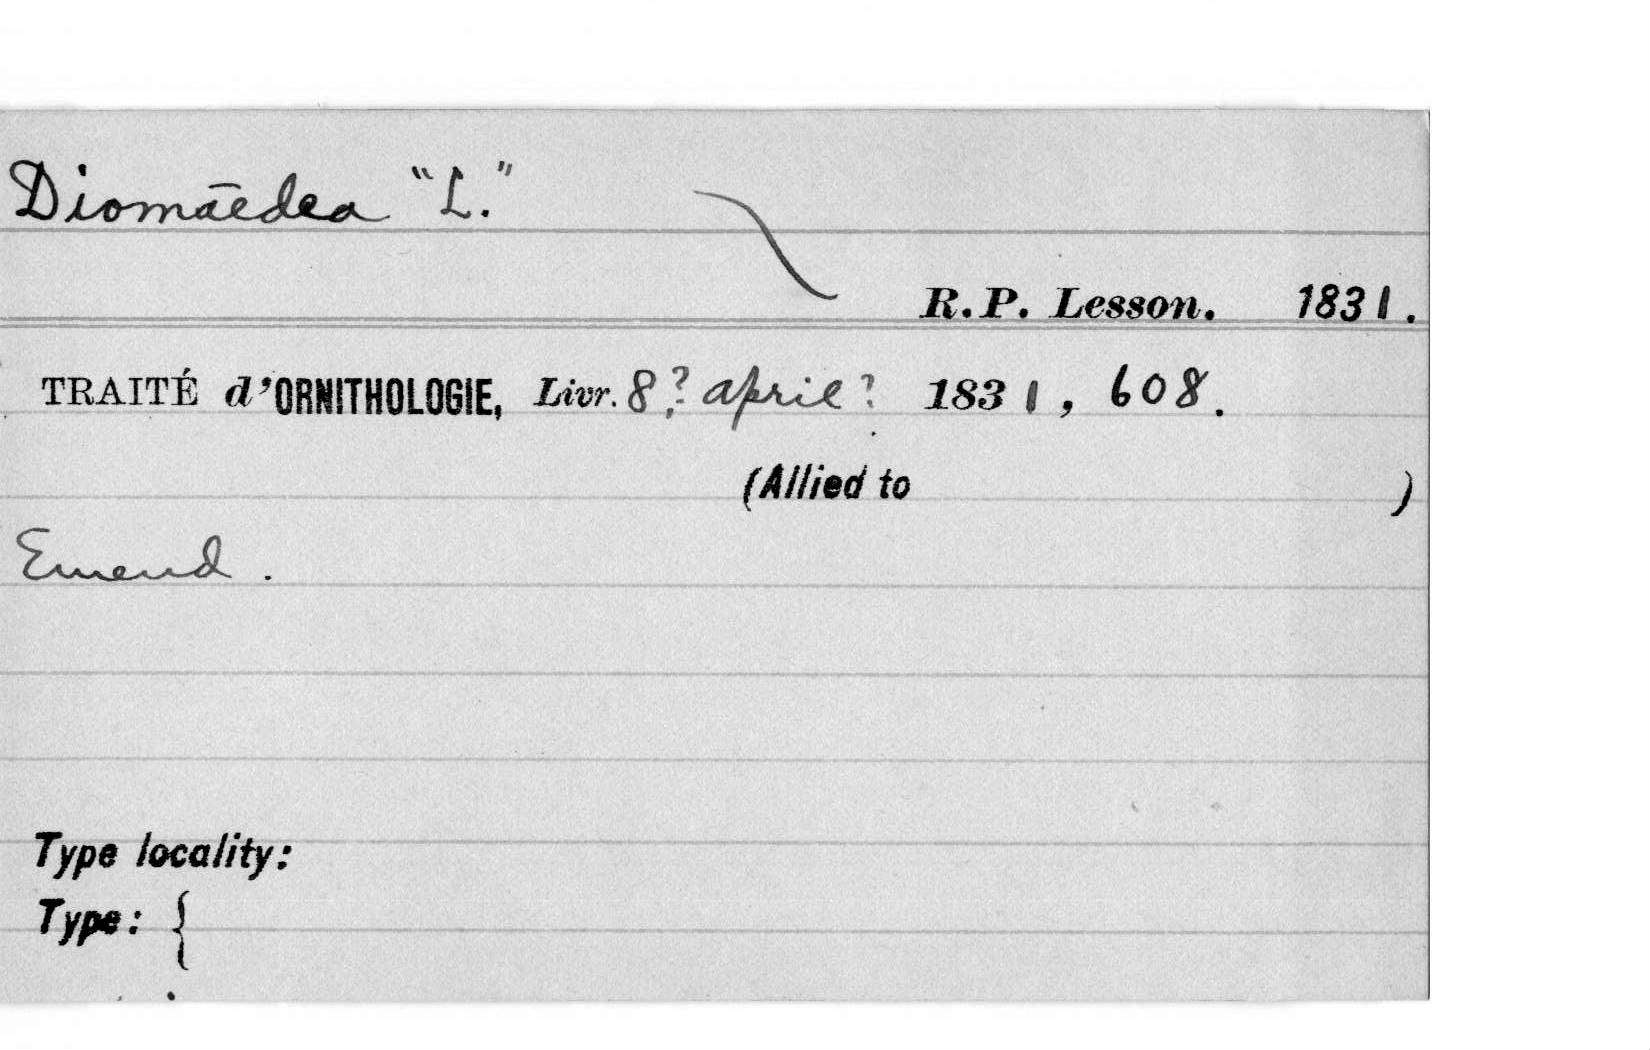 Diomāedea "L."
R.P. Lesson. 1831.
TRAITÉ d'ORNITHOLOGIE, Livr. 8?, april? 1831, 608.
(Allied to )
Emend.
Type locality:
Type: {